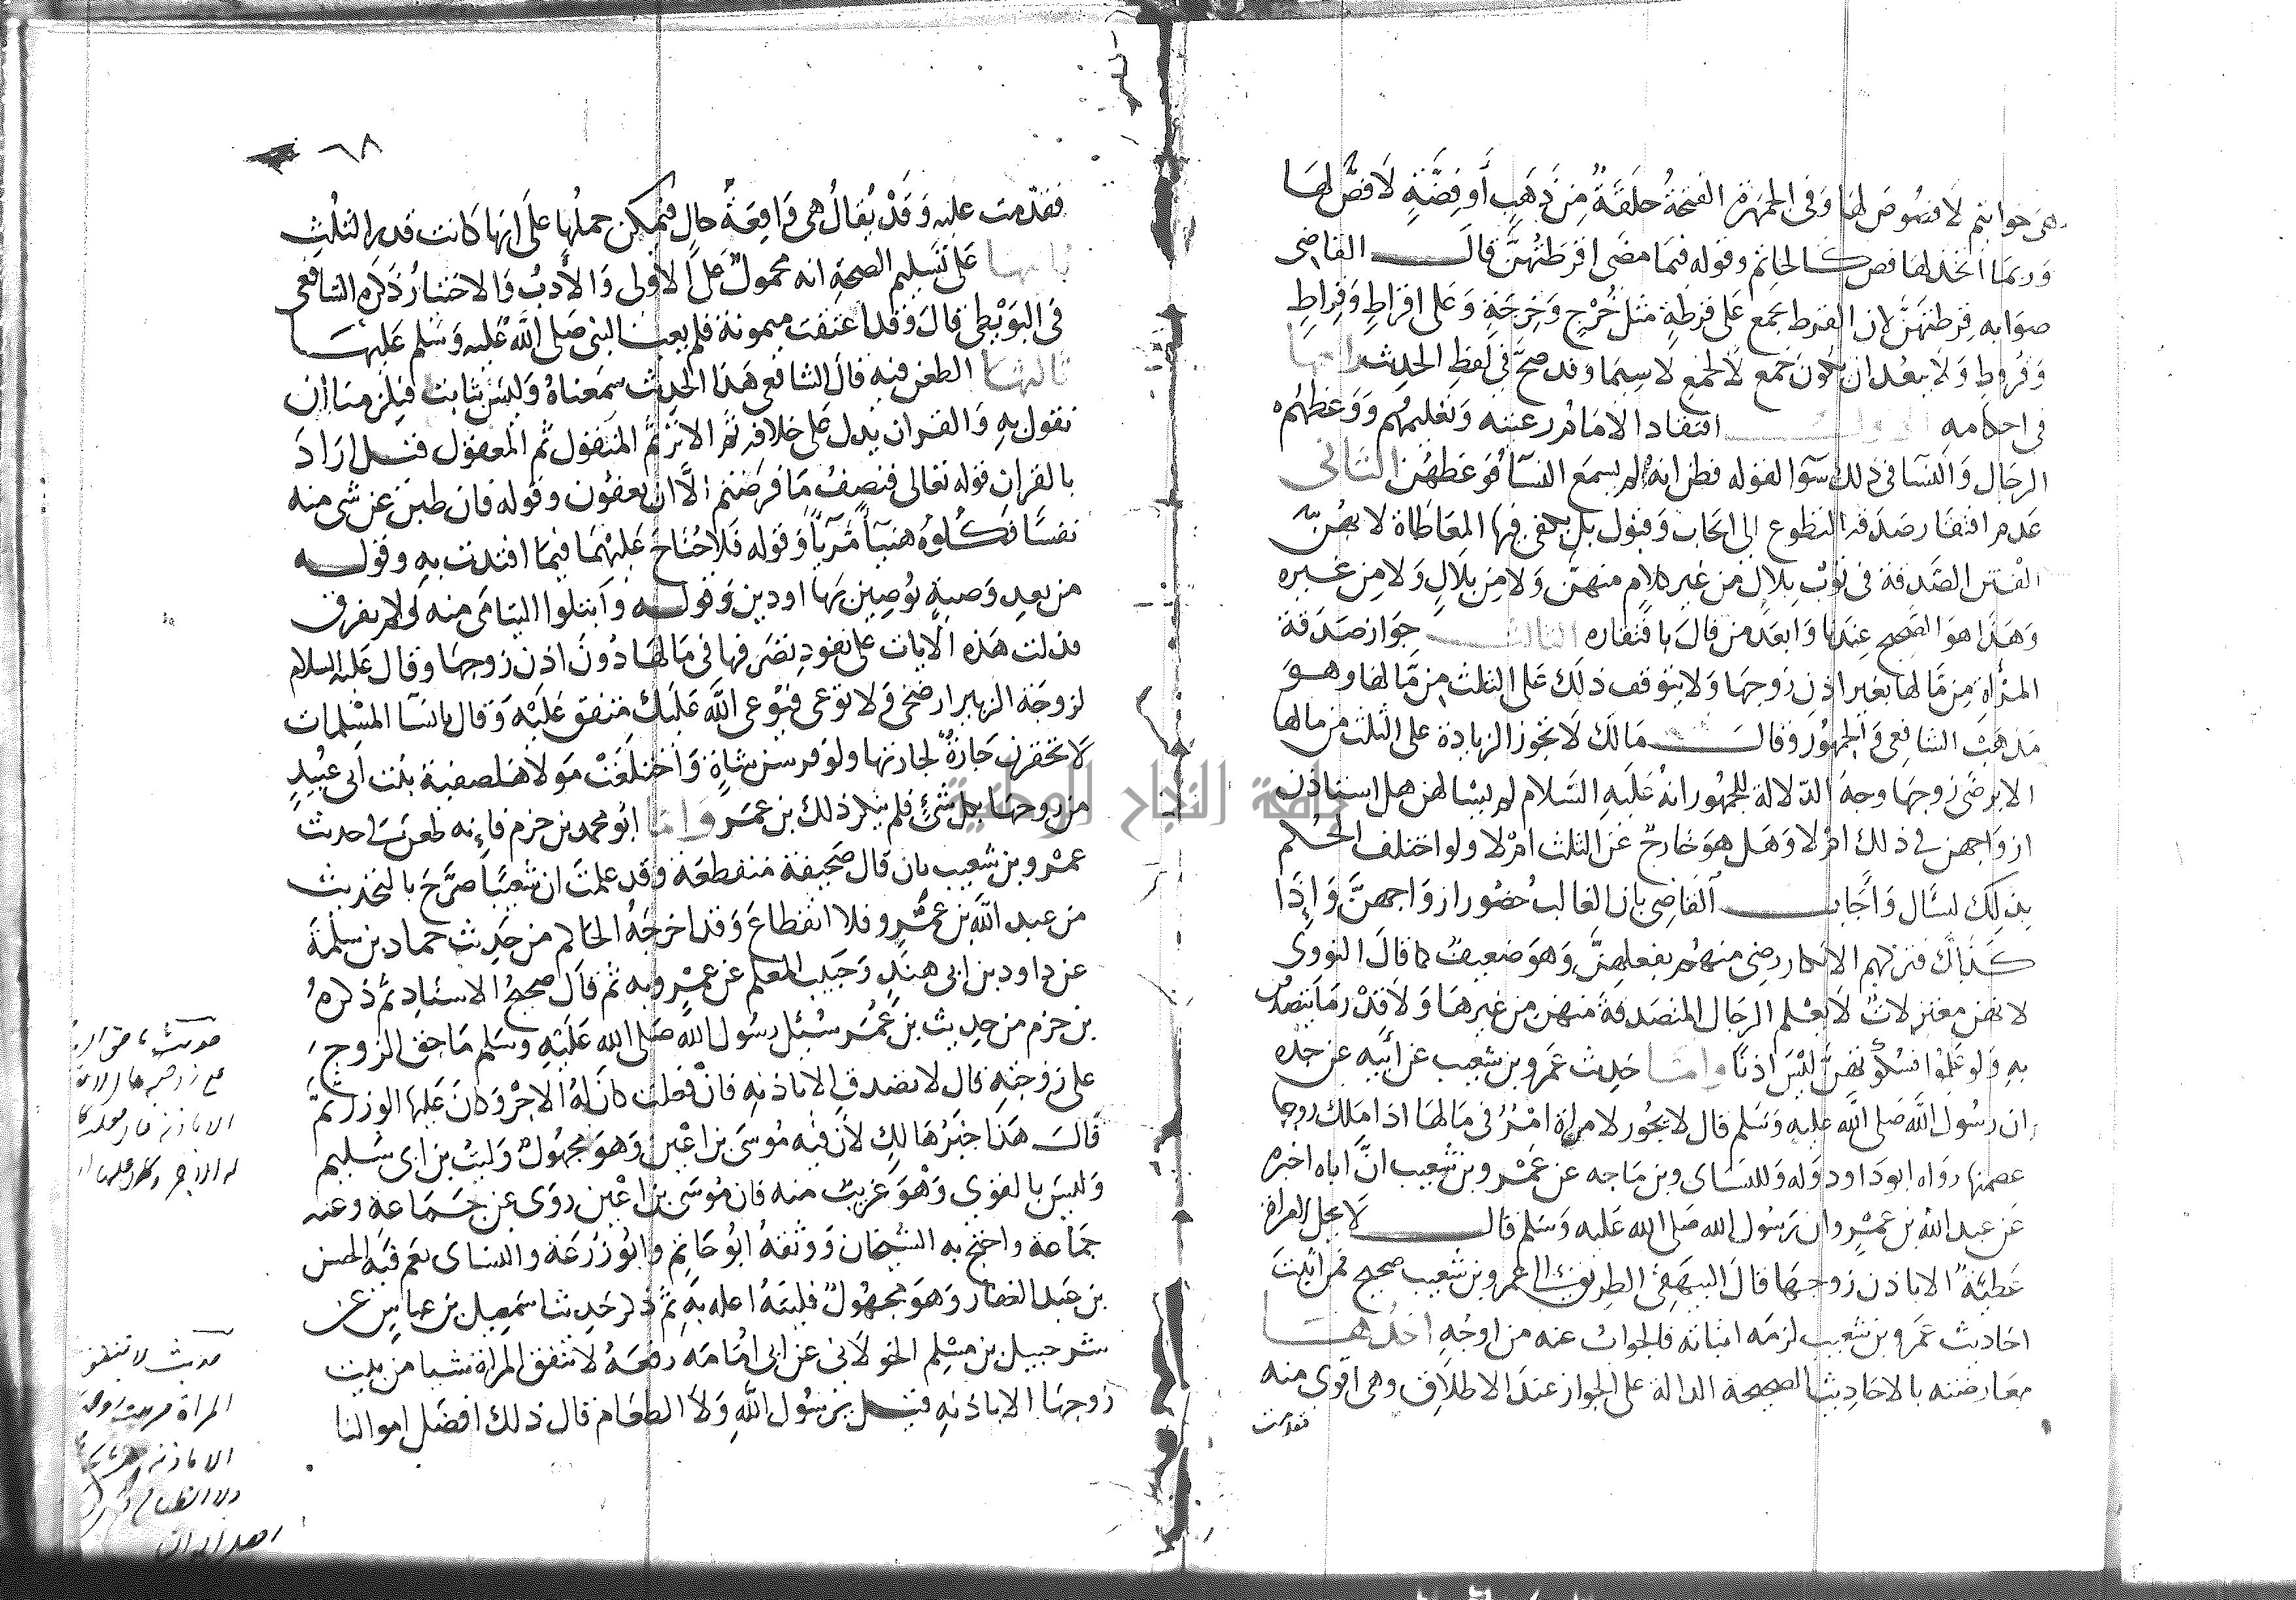 هي خواتيم لا فصوص لها وفي الجمهرة الفتخة حلقة من ذهب أو فضة لا فص لها
وربما اتخذ لها فص كالخاتم وقوله فيما مضى اقرطتهن قال القاضي
صوابه قرطتهن لان القرط يجمع على قرطة مثل خرج وخرجة وعلى اقراط وقراط
وقروط ولا يبعد ان يكون جمع الجمع لا سيما وقد صح في لفظ الحديث رابعها
في احكامه الاول افتقاد الامام رعيته وتعليمهم ووعظهم
الرجال والنسا في ذلك سوا لقوله فظن انه لم يسمع النسا فوعظهن الثاني
عدم افتقار صدقة التطوع الى ايجاب وقبول بل يكفي فيها المعاطاة لانهن
القين الصدقة في ثوب بلال من غير كلام منهن ولا من بلال ولا من غيره
وهذا هو الصحيح عندنا وابعد من قال بافتقاره الثالث جواز صدقة
المرأة من مالها بغير اذن زوجها ولا يتوقف ذلك على الثلث من مالها وهو
مذهب الشافعي والجمهور وقال مالك لا يجوز الزيادة على الثلث من مالها
الا برضى زوجها وجه الدلالة للجمهور انه عليه السلام لم يسالهن هل استاذن
ازواجهن في ذلك ام لا وهل هو خارج عن الثلث ام لا ولو اختلف الحكم
بذلك لسال واجاب القاضي بان الغالب حضور ازواجهن واذا
كذلك فتركهم الانكار رضى منهم بفعلهن وهو ضعيف كما قال النووي
لانهن معتزلات لا يعلم الرجال المتصدقة منهن من غيرها ولا قدر ما يتصدقن
به ولو علموا فسكوتهن ليس اذنا واما حديث عمرو بن شعيب عن ابيه عن جده
ان رسول الله صلى الله عليه وسلم قال لا يجوز لامراة امر في مالها اذا ملك زوجها
عصمتها رواه ابو داود وله وللنساي وبن ماجه عن عمرو بن شعيب ان اباه اخبره
عن عبد الله بن عمرو ان رسول الله صلى الله عليه وسلم قال لا يحل لامراة
عطية الا باذن زوجها قال البيهقي الطريق الى عمرو بن شعيب صحيح فمن اثبت
احاديث عمرو بن شعيب لزمه اثباته فالجواب عنه من اوجه احدها
معارضته بالاحاديث الصحيحة الدالة على الجواز عند الاطلاق وهي اقوى منه
فقدمت
٦٨
فقدمت عليه وقد يقال هي واقعة حال فيمكن حملها على انها كانت قدر الثلث
ثانيها على تسليم الصحة انه محمول على الاولى والأدب والاختيار ذكره الشافعي
في البويطي قال وقد اعتقت ميمونة فلم يعب النبي صلى الله عليه وسلم عليها
ثالثها الطعن فيه قال الشافعي هذا الحديث سمعناه وليس ثابت فيلزمنا أن
نقول به والقران يدل على خلافه ثم الاثر ثم المنقول ثم المعقول قيل اراد
بالقران قوله تعالى فنصف ما فرضتم الا ان يعفون وقوله فان طبن عن شي منه
نفسا فكلوه هنيئا مريئا وقوله فلا جناح عليهما فيما افتدت به وقوله
من بعد وصية يوصين بها او دين وقوله وابتلوا اليتامى منه ولم يفرق
فدلت هذه الايات على نفوذ تصرفها في مالها دون اذن زوجها وقال عليه السلام
لزوجة الزبير ارضخي ولا توعي فيوعي الله عليك متفق عليه وقال يا نسا المسلمات
لا تحقرن جارة لجارتها ولو فرسن شاة واختلعت مولاة لصفية بنت ابي عبيد
من زوجها بكل شئ فلم ينكر ذلك بن عمر واما ابو محمد بن حزم فإنه طعن في حديث
عمرو بن شعيب بان قال صحيفة منقطعة وقد علمت ان شعيبا صرح بالتحديث
من عبد الله بن عمرو فلا انقطاع وقد اخرجه الحاكم من حديث حماد بن سلمة
عن داود بن ابي هند وحبيب المعلم عن عمرو به ثم قال صحيح الاسناد ثم ذكره
بن حزم من حديث بن عمر سئل رسول الله صلى الله عليه وسلم ما حق الزوج
على زوجته قال لا تصدق الا باذنه فان فعلت كان له الاجر وكان عليها الوزر ثم
قال هذا خبر هالك لأن فيه موسى بن اعين وهو مجهول وليث بن ابي سليم
وليس بالقوي وهو غريب منه فان موسى بن اعين روى عن جماعة وعنه
جماعة واحتج به الشيخان ووثقه ابو حاتم وابو زرعة والنساي نعم فيه الحسن
بن عبد الغفار وهو مجهول فليته اعله به ثم ذكر حديث اسمعيل بن عياش عن
شرحبيل بن مسلم الخولاني عن ابي امامة رفعه لا تنفق المراة شيا من بيت
زوجها الا باذنه قيل يرسول الله ولا الطعام قال ذلك افضل اموالنا
حديث ما حق الزوج
على زوجته قال لا
الا باذنه فان فعلت كان
له الاجر وكان عليها
حديث لا تنفق
المراة من بيت زوجها
الا باذنه
ولا الطعام